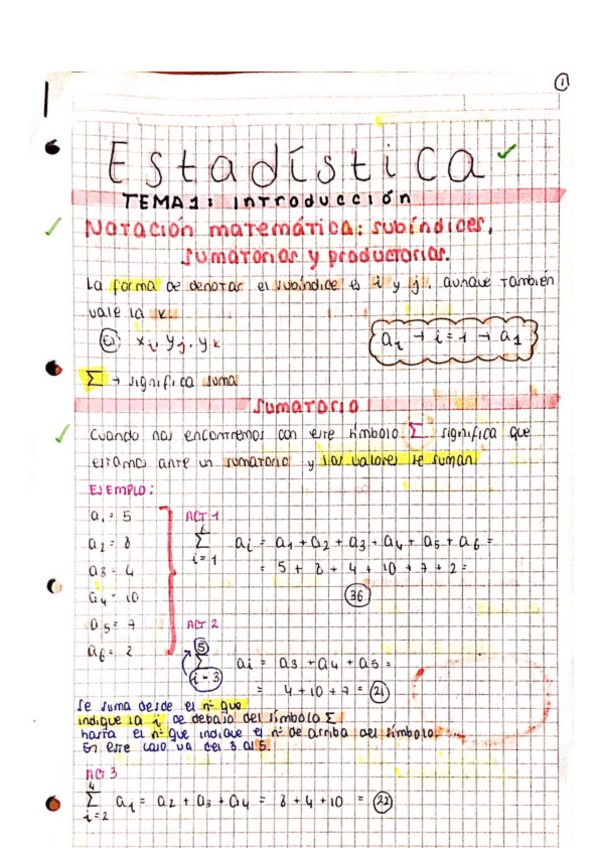 1
Estadística
TEMA 1: Introducción
Notación matemática: subíndices,
sumatorios y productorios.
La forma de denotar el subíndice es i y j, aunque también
vale la k.
Ej xi, yj, yk
ai → i=1 → a1
Σ → significa suma
Sumatorio
Cuando nos encontremos con este símbolo Σ significa que
estamos ante un sumatorio y los valores se suman.
EJEMPLO:
a1 = 5
a2 = 8
a3 = 4
a4 = 10
a5 = 7
a6 = 2
ACT 1
6 Σ i=1 ai = a1 + a2 + a3 + a4 + a5 + a6 =
= 5 + 8 + 4 + 10 + 7 + 2 =
36
ACT 2
5 Σ i=3 ai = a3 + a4 + a5 =
= 4 + 10 + 7 = 21
Se suma desde el nº que
indique la i de debajo del símbolo Σ
hasta el nº que indique el nº de arriba del símbolo.
En este caso va del 3 al 5.
ACT 3
4 Σ i=2 a1 = a2 + a3 + a4 = 8 + 4 + 10 = 22